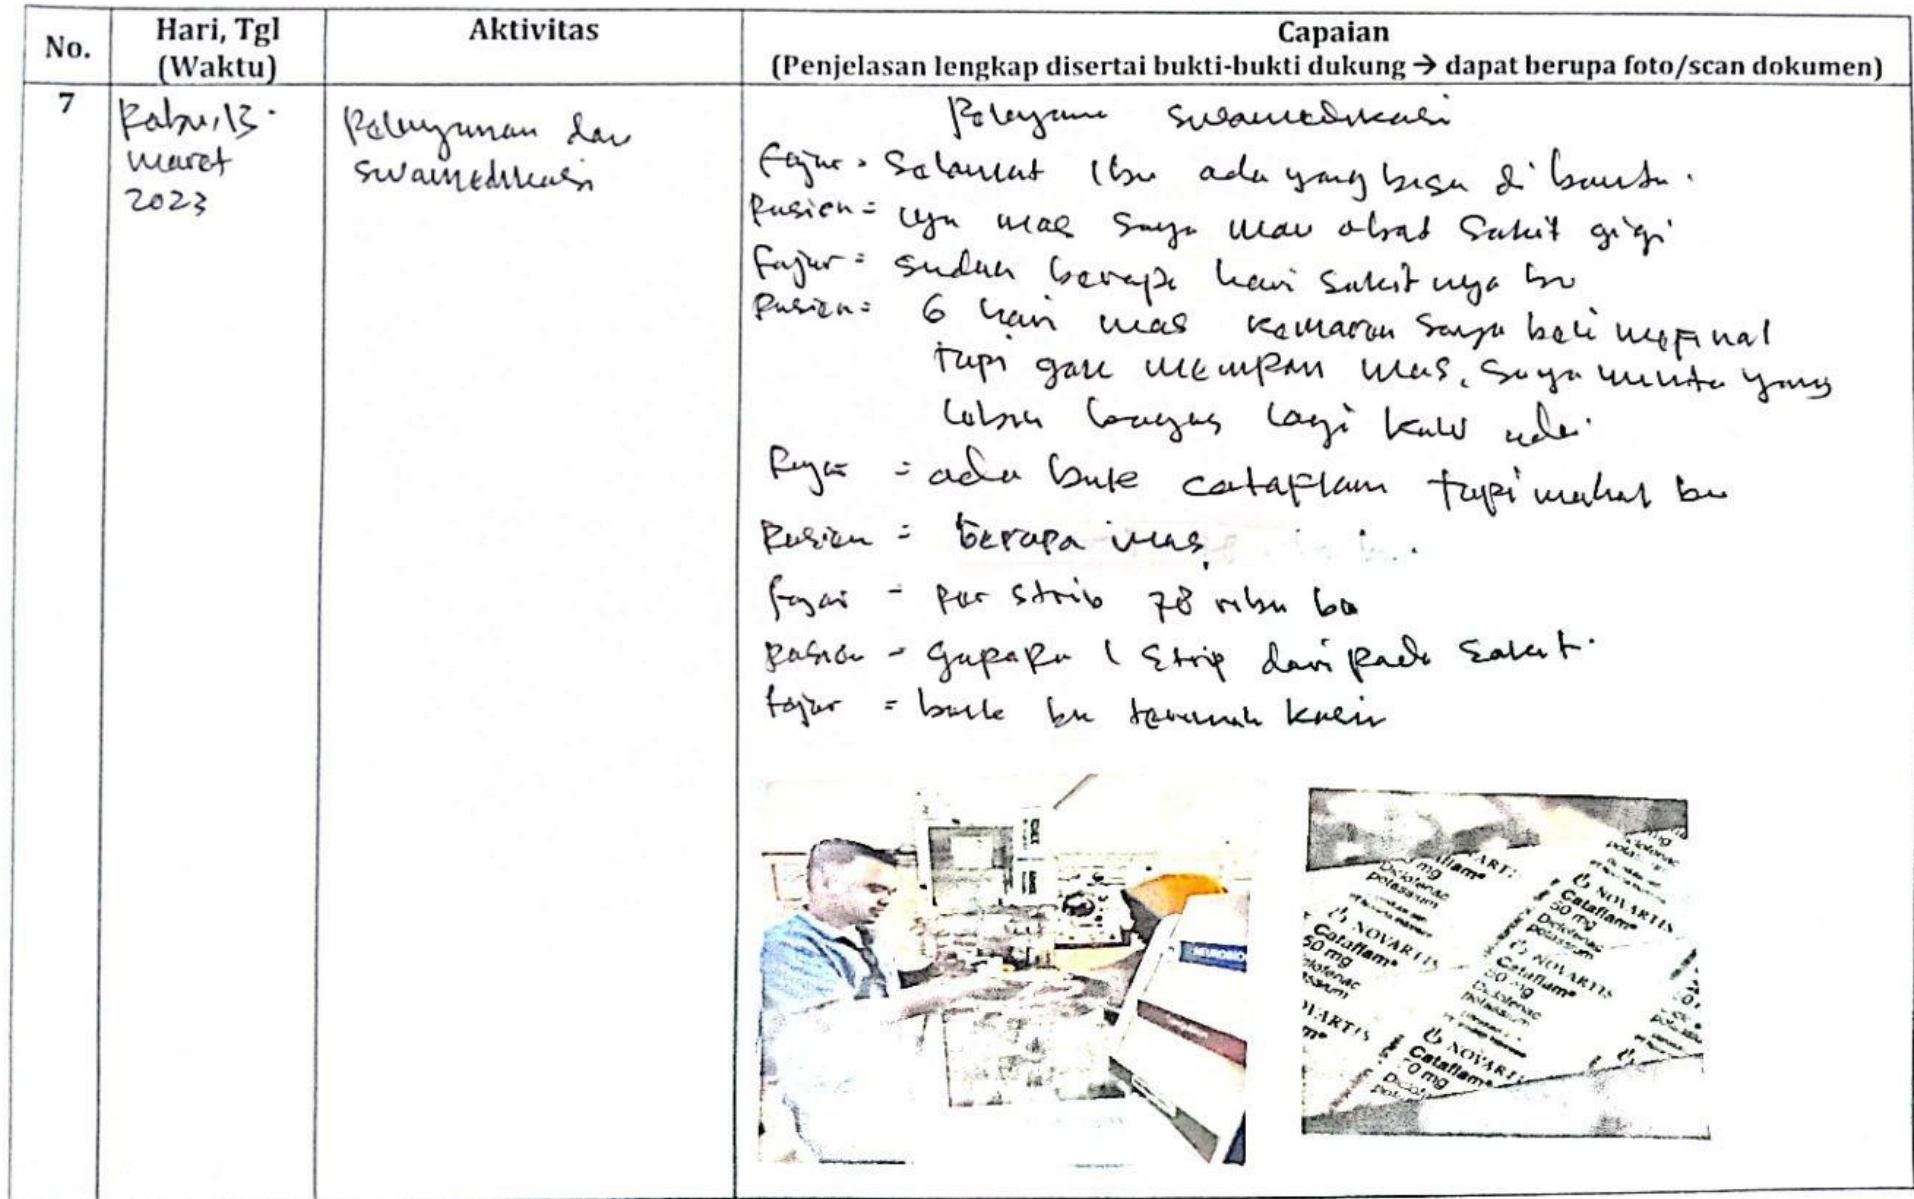 No.
Hari, Tgl
(Waktu)
Aktivitas
Capaian
(Penjelasan lengkap disertai bukti-bukti dukung → dapat berupa foto/scan dokumen)
7
Rabu, 15.
Maret
2023
Pelayanan dan
swamedikasi
Pelayanan swamedikasi
Fajar = Selamat Ibu ada yang bisa di bantu.
Pasien = iya mas saya mau obat sakit gigi
Fajar = sudah berapa hari sakit nya bu
Pasien = 6 hari mas kemaren saya beli mefinal
tapi gak mempan mas, saya minta yang
lebih bagus lagi kalo ada.
Fajar = ada buk cataflam tapi mahal bu
Pasien = berapa mas
Fajar = per strib 78 ribu bu
pasien = gapapa 1 strip dari pada sakit.
Fajar = baik bu terimah kasih
NEUROBIO
NOVARTIS
Cataflam®
50 mg
Diclofenac
potassium
NOVARTIS
Cataflam®
50 mg
Diclofenac
potassium
NOVARTIS
Cataflam®
50 mg
Diclofenac
potassium
NOVARTIS
Cataflam®